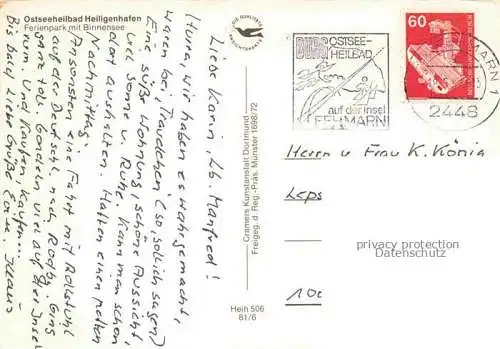 Ostseeheilbad Heiligenhafen
Ferienpark mit Binnensee
Liebe Karin, Lb. Manfred!
Hurra, wir haben es wahrgemacht,
waren bei Travelchen (so, soll ich sagen)
Eine süße Wohnung, schöne Aussicht,
viel Sonne u. Ruhe. Kann man schon
gut aushalten. Hatten einen netten
Nachmittag.
Ansonsten eine Fahrt mit Rollstuhl
auf der Deutschl. nach Rodby. Ging
ganz toll. Gondeln viel auf der Insel
rum. Und Kaufen, Kaufen...
Bis bald Liebe Grüße, Eure
Klaus
DIE QUALITÄTS
ANSICHTSKARTE
Cramers Kunstanstalt Dortmund
Freigeg. d. Reg.-Präs. Münster 1698/72
Heih 506
81/6
BURG OSTSEE-
HEILBAD
auf der Insel
FEHMARN
60
2448
Herrn u Frau K. König
privacy protection
Datenschutz